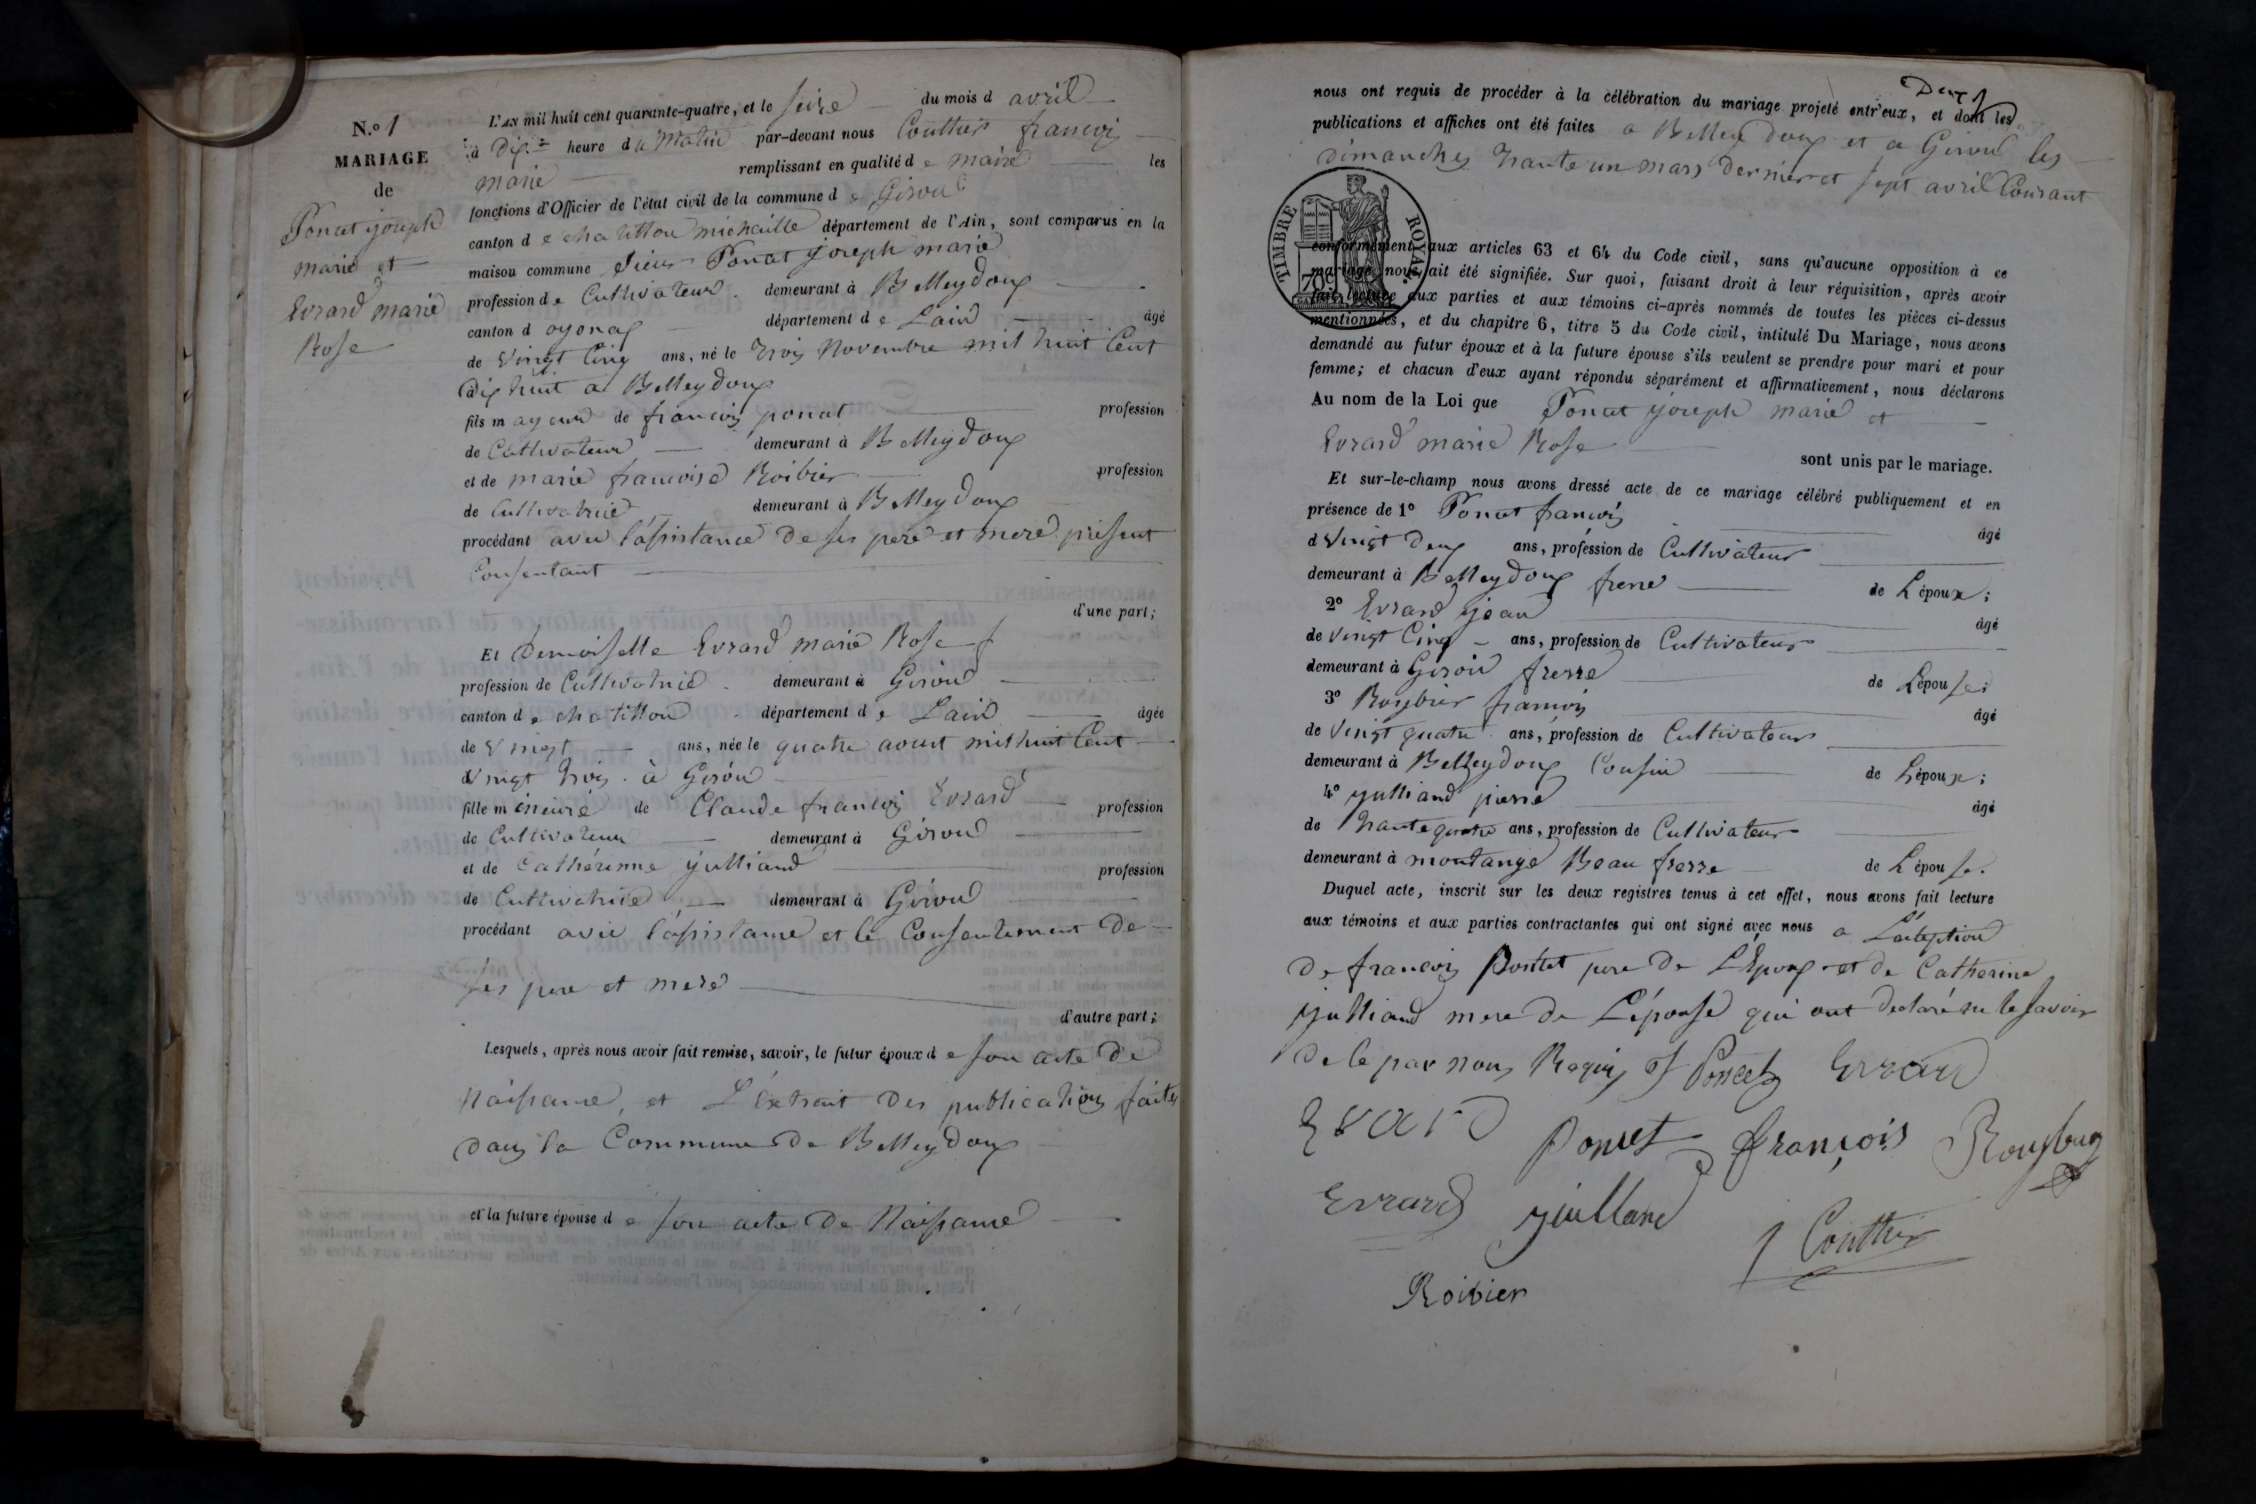 N.o 1
MARIAGE
de
Ponat joseph
marie et
Evrard marie
Rose
L'AN mil huit cent quarante-quatre, et le seize du mois d avril
à Dix heure d u Matin par-devant nous Coutier francois
marie remplissant en qualité d e maire les
fonctions d'Officier de l'état civil de la commune d e Giron
canton d e chatillon michaille département de l'Ain, sont comparus en la
maison commune Sieur Ponat joseph marie
profession d e Cultivateur demeurant à Belleydoux
canton d oyonax département d e Lain âgé
de Vingt Cinq ans, né le trois Novembre mil huit Cent
dix huit a Belleydoux
fils m ajeur de francois ponat profession
de Cultivateur demeurant à Belleydoux
et de marie francoise Roibier profession
de Cultivatrice demeurant à Belleydoux
procédant avec l'assistance de ses pere et mere présent
Consentant
d'une part;
Et Demoiselle Evrard marie Rose
profession de Cultivatrice demeurant à Giron
canton d e chatillon département d e Lain âgée
de Vingt ans, née le quatre aout mil huit Cent
Vingt trois à Giron
fille m ineure de Claude francois Evrard profession
de Cultivateur demeurant à Giron
et de Cathérinne julliand profession
de Cultivatrice demeurant à Giron
procédant avec l'assistance et le Consentement de
ses pere et mere
d'autre part;
Lesquels, après nous avoir fait remise, savoir, le futur époux d e son acte de
Naissance, et L'éxtrait des publications faites
dans la Commune de Belleydoux
et la future épouse d e son acte de Naissance
Deux
nous ont requis de procéder à la célébration du mariage projeté entr'eux, et dont les
publications et affiches ont été faites a Belleydoux et a Giron les
dimanches trante un mars dernier et sept avril Courant
TIMBRE ROYAL
conformément aux articles 63 et 64 du Code civil, sans qu'aucune opposition à ce
mariage nous ait été signifiée. Sur quoi, faisant droit à leur réquisition, après avoir
fait lecture aux parties et aux témoins ci-après nommés de toutes les pièces ci-dessus
mentionnées, et du chapitre 6, titre 5 du Code civil, intitulé Du Mariage, nous avons
demandé au futur époux et à la future épouse s'ils veulent se prendre pour mari et pour
femme; et chacun d'eux ayant répondu séparément et affirmativement, nous déclarons
Au nom de la Loi que Ponat joseph marie et
Evrard marie Rose
sont unis par le mariage.
Et sur-le-champ nous avons dressé acte de ce mariage célébré publiquement et en
présence de 1o Ponat francois
âgé
d Vingt deux ans, profession de Cultivateur
demeurant à Belleydoux frere de L'époux;
2o Evrard jean
âgé
de Vingt Cinq ans, profession de Cultivateur
demeurant à Giron frerre de L'épouse;
3o Roybier francois
âgé
de Vingt quatre ans, profession de Cultivateur
demeurant à Belleydoux Cousin de L'époux;
4o julliand pierre
âgé
de trante quatre ans, profession de Cultivateur
demeurant à montange Beau frerre de L'épouse.
Duquel acte, inscrit sur les deux registres tenus à cet effet, nous avons fait lecture
aux témoins et aux parties contractantes qui ont signé avec nous a L'éxteption
de francois Pontet pere de L'Epoux et de Catherine
julliand mere de L'épouse qui ont declaré ne le savoir
de le par nous Requis J Poncet Evrard
Evard Poncet françois
Evrard juilland
Coutier
Roibier